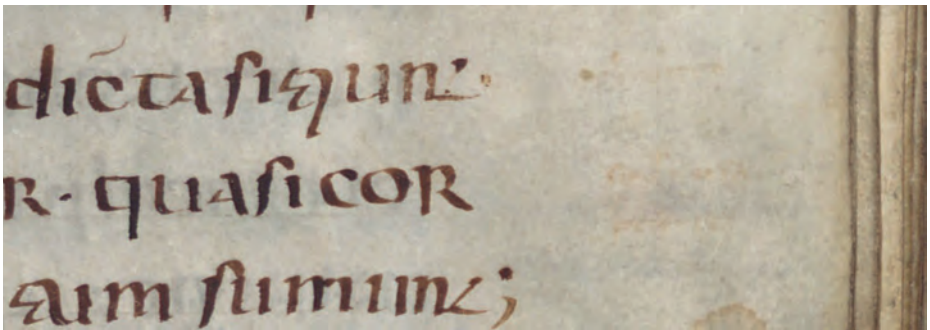 dicta siqunt·
R· quasi cor
sumunt;